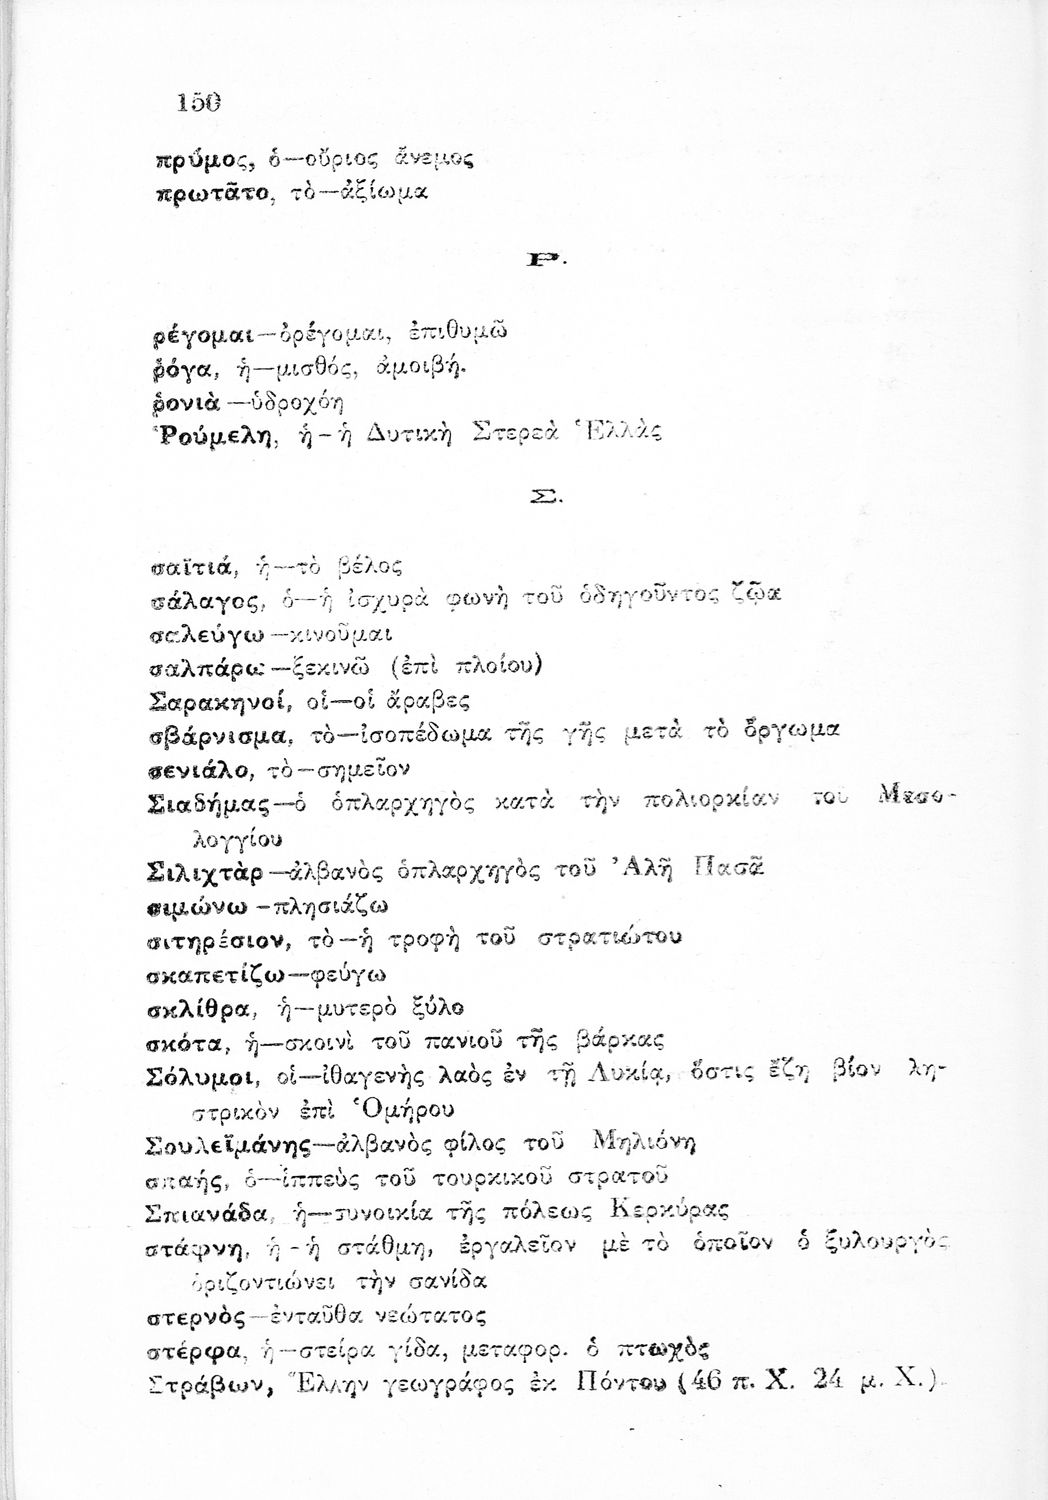 150
πρύμος, ὁ—οὔριος ἄνεμος
πρωτᾶτο, τὸ—ἀξίωμα
Ρ.
ρέγομαι—ὀρέγομαι, ἐπιθυμῶ
ῥόγα, ἡ—μισθός, ἀμοιβή.
ῥονιὰ—ὑδροχόη
Ῥούμελη, ἡ-ἡ Δυτικὴ Στερεὰ Ἑλλὰς
Σ.
σαϊτιά, ἡ—τὸ βέλος
σάλαγος, ὁ—ἡ ἰσχυρὰ φωνὴ τοῦ ὁδηγοῦντος ζῷα
σαλεύγω—κινοῦμαι
σαλπάρω—ξεκινῶ (ἐπὶ πλοίου)
Σαρακηνοί, οἱ—οἱ ἄραβες
σβάρνισμα, τὸ—ἰσοπέδωμα τῆς γῆς μετὰ τὸ ὄργωμα
σενιάλο, τὸ—σημεῖον
Σιαδήμας—ὁ ὁπλαρχηγὸς κατὰ τὴν πολιορκίαν τοῦ Μεσο-
λογγίου
Σιλιχτὰρ—ἀλβανὸς ὁπλαρχηγὸς τοῦ Ἀλῆ Πασᾶ
σιμώνω-πλησιάζω
σιτηρέσιον, τὸ—ἡ τροφὴ τοῦ στρατιώτου
σκαπετίζω—φεύγω
σκλίθρα, ἡ—μυτερὸ ξύλο
σκότα, ἡ—σκοινὶ τοῦ πανιοῦ τῆς βάρκας
Σόλυμοι, οἱ—ἰθαγενὴς λαὸς ἐν τῇ Λυκίᾳ, ὅστις ἔζη βίον λῃ-
στρικὸν ἐπὶ Ὁμήρου
Σουλεϊμάνης—ἀλβανὸς φίλος τοῦ Μηλιόνη
σπαής, ὁ—ἱππεὺς τοῦ τουρκικοῦ στρατοῦ
Σπιανάδα, ἡ—συνοικία τῆς πόλεως Κερκύρας
στάφνη, ἡ-ἡ στάθμη, ἐργαλεῖον μὲ τὸ ὁποῖον ὁ ξυλουργὸς
ὁριζοντιώνει τὴν σανίδα
στερνὸς—ἐνταῦθα νεώτατος
στέρφα, ἡ—στείρα γίδα, μεταφορ. ὁ πτωχὸς
Στράβων, Ἕλλην γεωγράφος ἐκ Πόντου (46 π. Χ. 24 μ. Χ.).